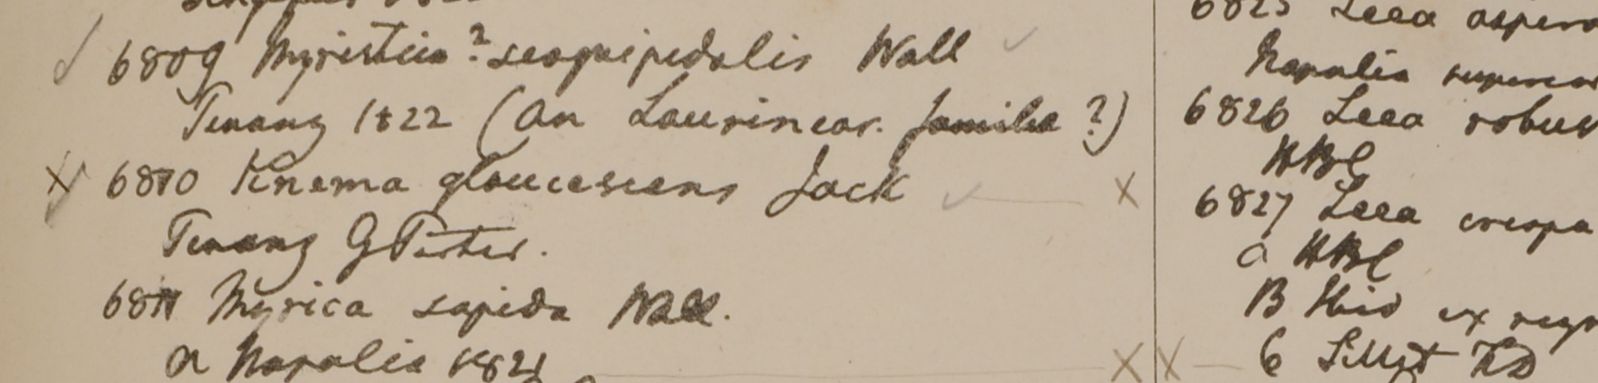 6809 Myristica? sesquipedalis Wall
Penang 1822 (an Laurinear. familia?)
6810 Knema glaucescens Jack
Penang G Porter.
6811 Myrica sapida Wall.
a Napalia 1821
6825 Leea aspera
Napalia
6826 Leea robus
HBC
6827 Leea crispa
a HBC
B Hio ex
6 Sillet FD